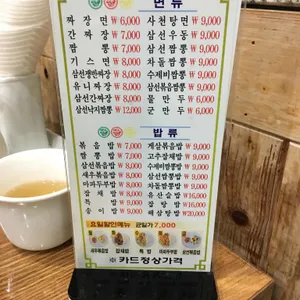 면 류
짜 장 면 ₩ 6,000 사천탕면 ₩ 9,000
간 짜 장 ₩ 7,000 삼선우동 ₩ 9,000
짬 뽕 ₩ 7,000 삼선짬뽕 ₩ 9,000
기 스 면 ₩ 8,000 차돌짬뽕 ₩ 9,000
삼선쟁반짜장 ₩ 8,000 수제비짬뽕 ₩ 9,000
유니짜장 ₩ 8,000 삼선볶음짬뽕 ₩ 9,000
삼선간짜장 ₩ 8,000 물 만 두 ₩ 6,000
삼선낙지짬뽕 ₩ 8,000 군 만 두 ₩ 6,000
밥 류
볶 음 밥 ₩ 7,000 게살볶음밥 ₩ 9,000
짬 뽕 밥 ₩ 7,000 고추잡채밥 ₩ 9,000
삼선볶음밥 ₩ 8,000 수제비짬뽕밥 ₩ 9,000
새우볶음밥 ₩ 8,000 삼선짬뽕밥 ₩ 9,000
마파두부밥 ₩ 8,000 차돌짬뽕밥 ₩ 9,000
잡 채 밥 ₩ 8,000 유산슬밥 ₩16,000
특 밥 ₩ 9,000 잡 탕 밥 ₩16,000
송 이 밥 ₩ 9,000 해삼탕밥 ₩20,000
요일할인메뉴 균일가 7,000
새우볶음밥 잡채밥 특밥 마파두부밥 삼선볶음밥
카드정상가격